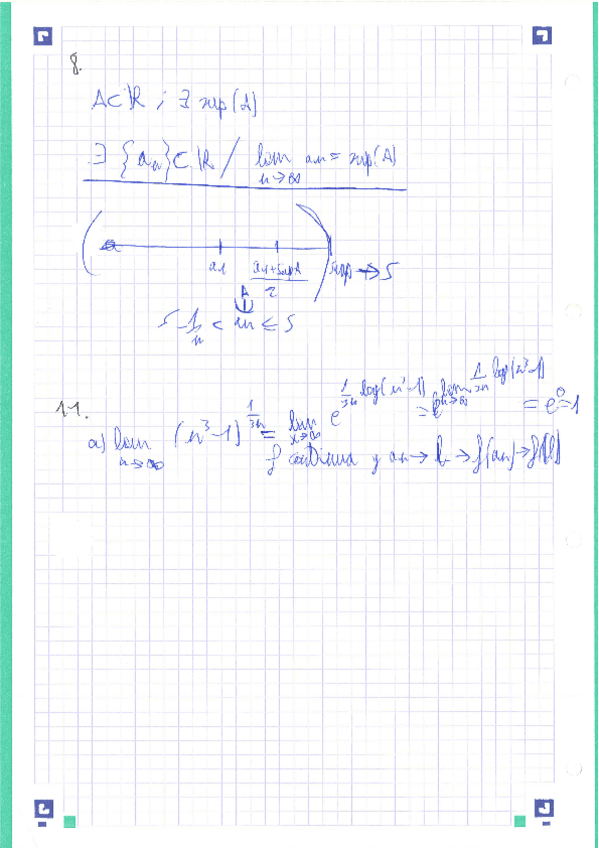 8.
A⊂ℝ ; ∃ sup(A)
∃ {aₙ}⊂ℝ / lim aₙ = sup(A)
n→∞
a₁ sup → S
S - 1/n < aₙ ≤ S
11.
a) lim (n³-1)^(1/3n) = lim e^(1/3n log(n³-1)) = e^(lim 1/3n log(n³-1)) = e⁰=1
n→∞ x→∞ n→∞
f continua y aₙ → l → f(aₙ) → f(l)